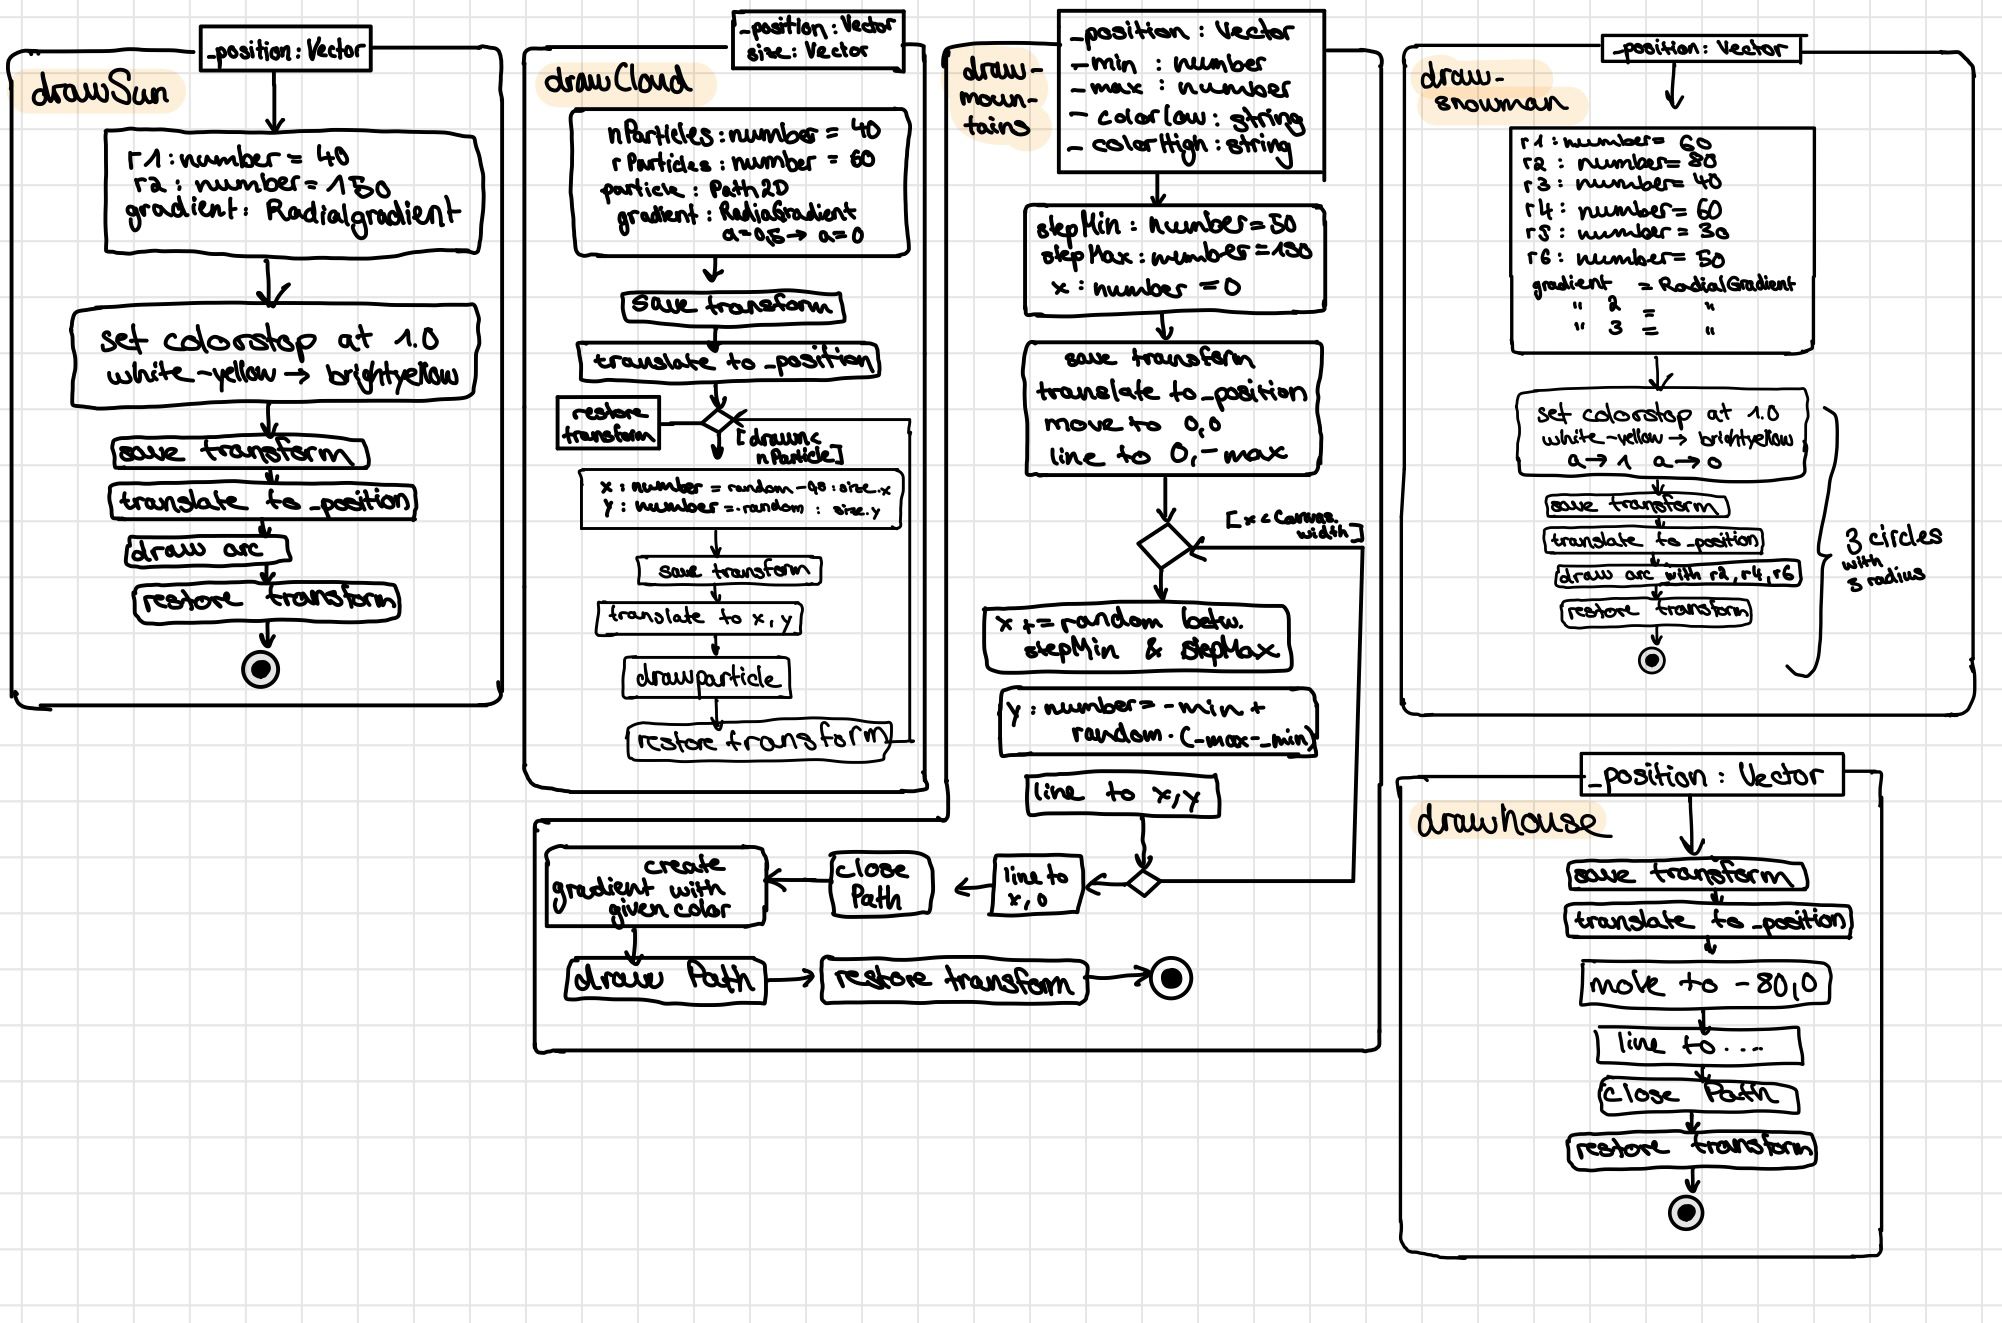 _position: Vector
drawSun
r1: number = 40
r2: number = 150
gradient: Radialgradient
set colorstop at 1.0
white-yellow → brightyellow
save transform
translate to _position
draw arc
restore transform
_position: Vector
size: Vector
drawCloud
nParticles: number = 40
rParticles: number = 60
particle: Path2D
gradient: RadiaGradient
a=0,5 → a=0
save transform
translate to _position
restore
transform
[drawn<
nParticle]
x: number = random -0,5 · size.x
y: number = -random · size.y
save transform
translate to x,y
drawparticle
restore transform
_position: Vector
_min : number
_max : number
_colorlow: string
_colorHigh: string
draw-
moun-
tains
stepMin: number=50
stepMax: number=150
x: number = 0
save transform
translate to _position
move to 0,0
line to 0,-max
[x < Canvas.
width]
x += random betw.
stepMin & stepMax
y: number= -min +
random·(-max-_min)
line to x,y
line to
x,0
close
Path
create
gradient with
given color
draw Path
restore transform
_position: Vector
draw-
snowman
r1: number= 60
r2: number= 80
r3: number= 40
r4: number= 60
r5: number = 30
r6: number= 50
gradient = RadialGradient
" 2 = "
" 3 = "
set colorstop at 1.0
white-yellow → brightyellow
a→1 a→0
save transform
translate to _position
draw arc with r2,r4,r6
restore transform
3 circles
with
3 radius
_position: Vector
drawhouse
save transform
translate to _position
move to -80,0
line to ....
close Path
restore transform